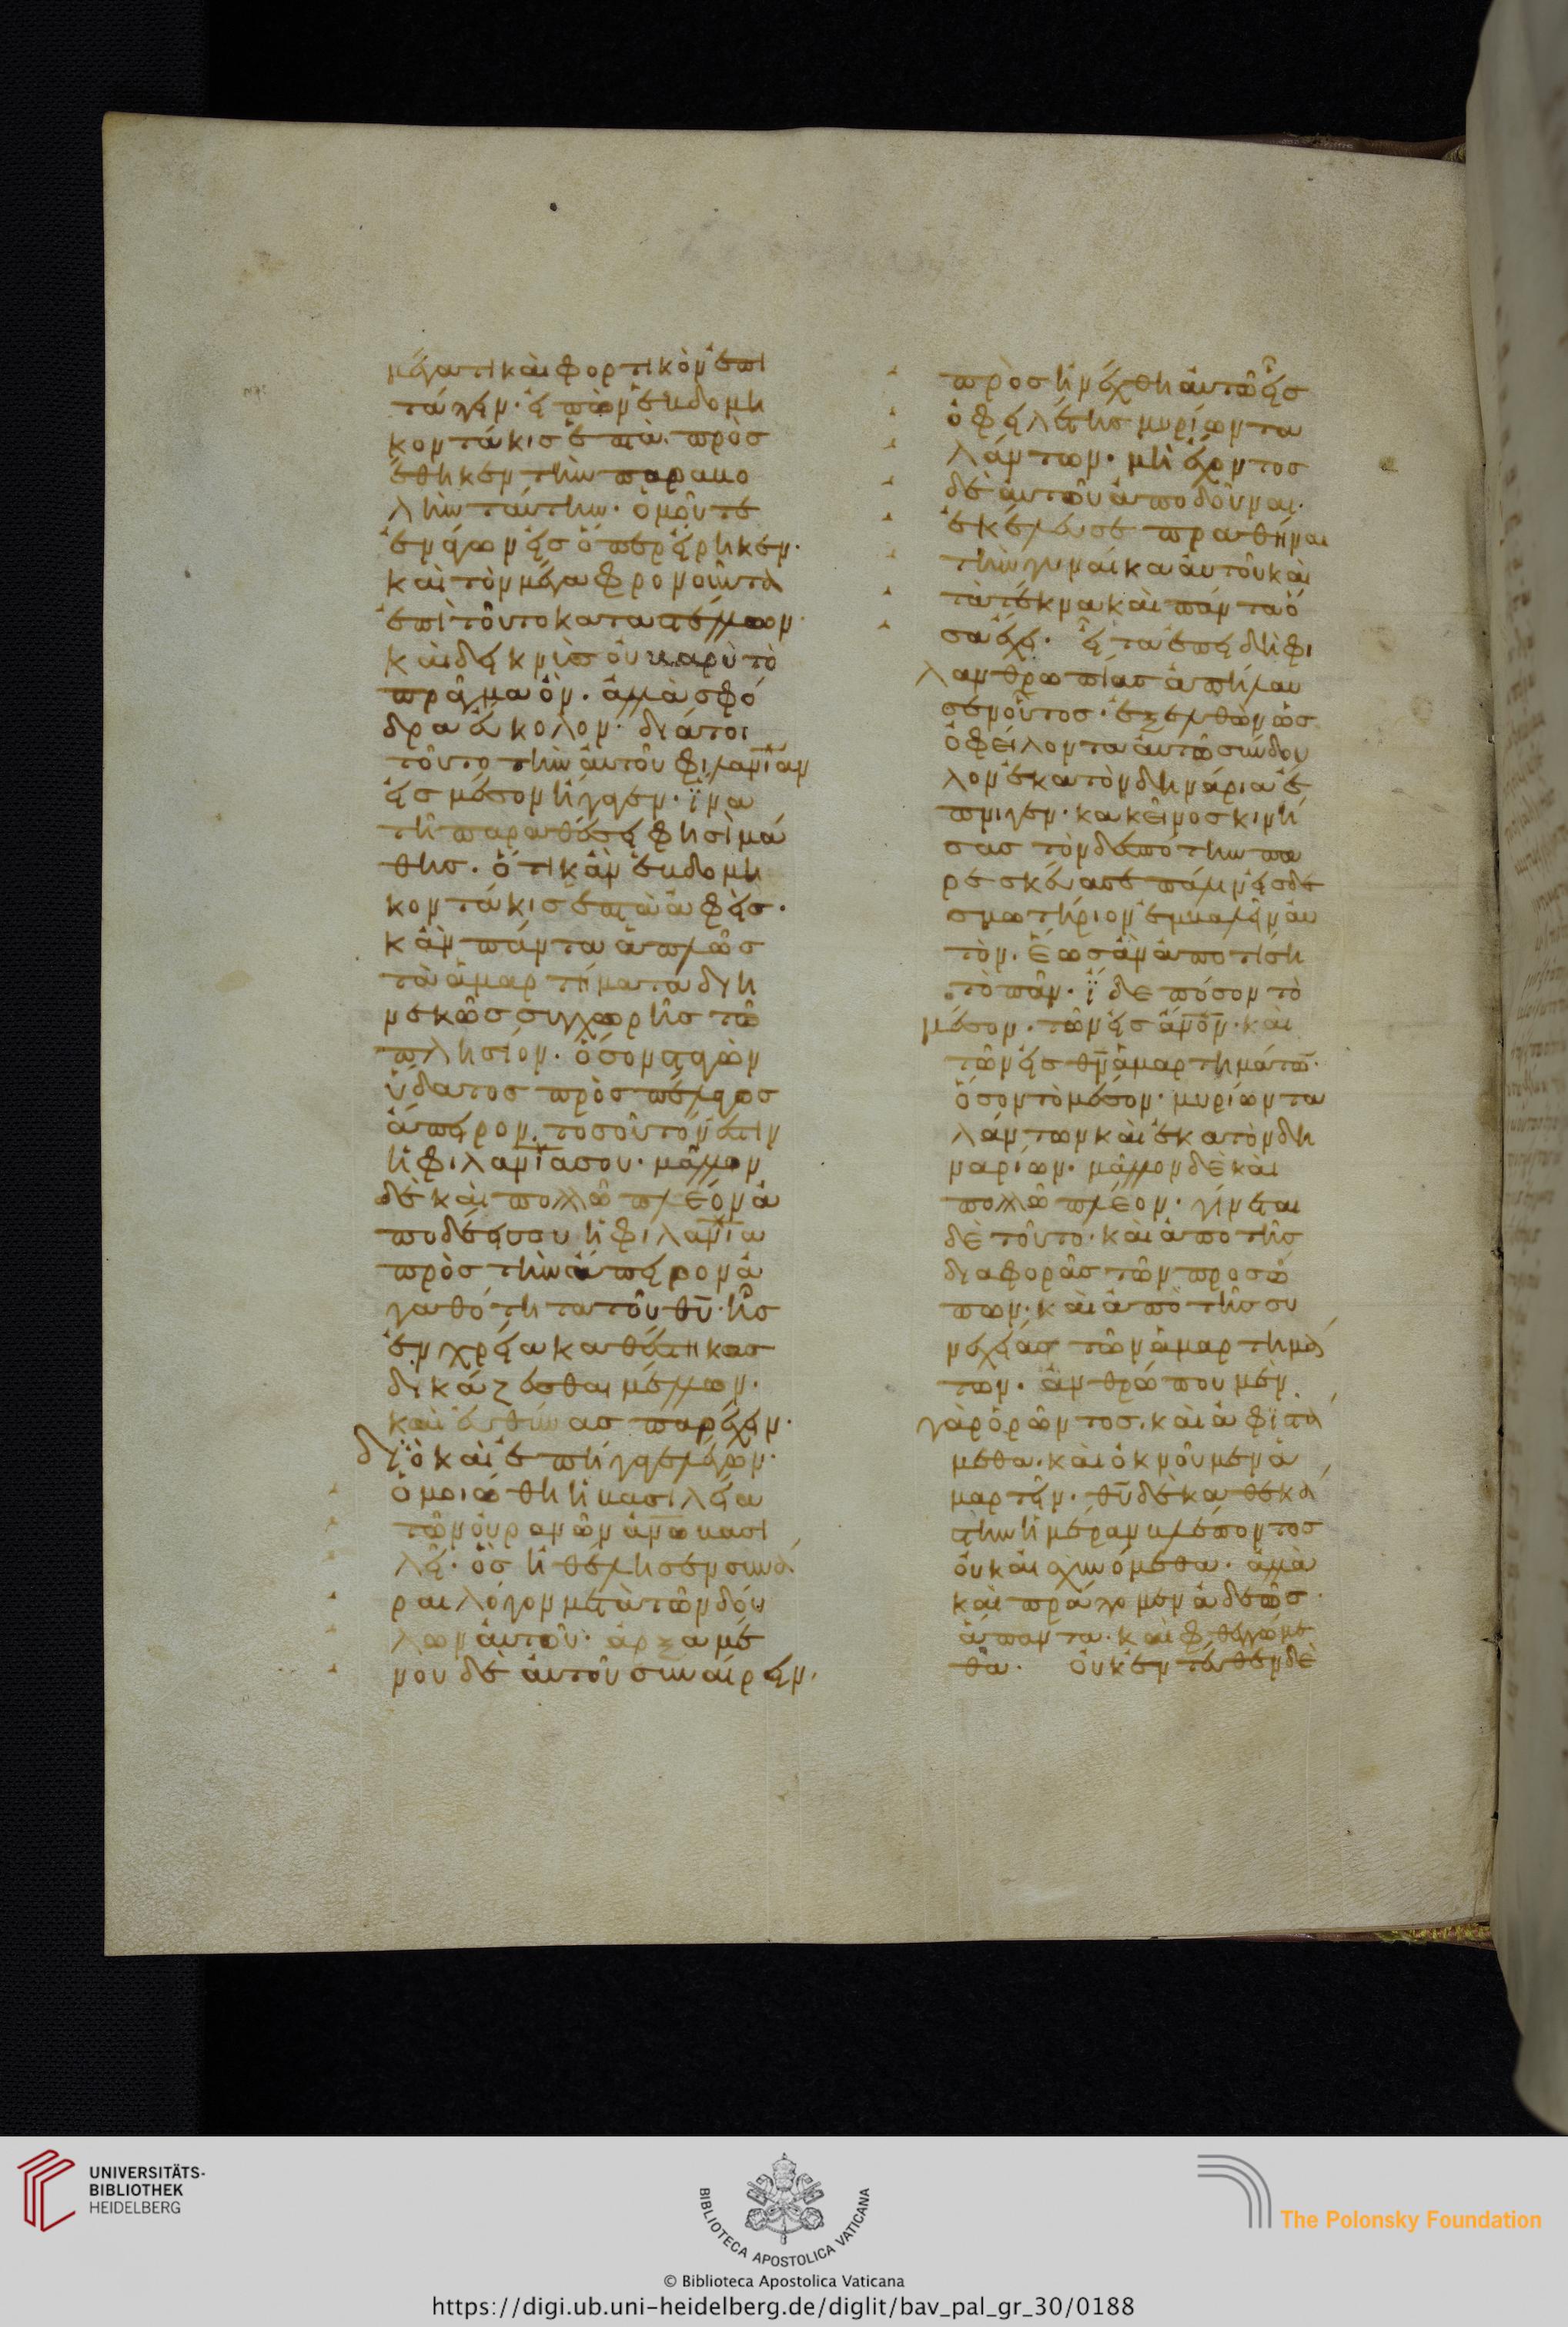 μέγα τι καὶ φορτικὸν ἐπι
τάγειν· εἰπὼν ἑβδομη
κοντάκις ἑπτὰ. προσ
έθηκεν τὴν παραβο
λὴν ταύτην· ὁμοῦ τε
ἐνάγων εἰς ὅπερ εἴρηκεν·
καὶ τὸν μέγα φρονοῦντα
ἐπὶ τοῦτο καταστέλλων·
καὶ δεικνὺς οὐ βαρὺ τὸ
πρᾶγμα ὂν. ἀλλὰ σφό
δρα εὔκολον· διάτοι
τοῦτο τὴν αὐτοῦ φιλανίαν
εἰς μέσον ἤγαγεν· ἵνα
τῆ παραθέσει φησὶ μά
θης. ὅτι κἂν ἑβδομη
κοντάκις ἑπτὰ ἀφεῖς·
κἂν πάντα ἁπλῶς
τὰ ἁμαρτήματα διη
νεκῶς συγχωρῆς τῶ
πλησίον· ὅσον σταγὼν
ὕδατος πρὸς πέλαγος
ἄπειρον. τοσοῦτον ἐστὶν
ἡ φιλανία σου· μᾶλλον
δὲ καὶ πολλῶ πλέον ἀ
ποδέει σου ἡ φιλανία
πρὸς τὴν ἄπειρον ἀ
γαθότητα τοῦ θυ· ἧς
ἐν χρεία καθέστηκας
δικάζεσθαι μέλλων·
καὶ εὐθύνας παρέχειν·
Διὸ καὶ ἐπήγαγε λέγων·
ὁμοιώθη ἡ βασιλεία
τῶν οὐρανῶν ἀνω βασι
λεῖ· ὃς ἠθέλησεν συνᾶ
ραι λόγον μετὰ τῶν δού
λων αὐτοῦ· ἀρξαμέ
νου δὲ αὐτοῦ συναίρειν.
προσηνέχθη αὐτῶ εἷς
ὀφειλέτης μυρίων τα
λάντων· μὴ ἔχοντος
δὲ αὐτοῦ ἀποδοῦναι·
ἐκέλευσε πραθῆναι
τὴν γυναῖκα αὐτοῦ καὶ
τὰ τέκνα καὶ πάντα ὅ
σα εἶχε· εἶτα ἐπειδὴ φι
λανθρωπίας ἀπήλαυ
σεν οὗτος· ἐξελθὼν ὡς
ὀφείλοντα αὐτῶ σύνδου
λον ἑκατὸν δηνάρια ἔ
πνιγεν· κακεῖνος κινή
σας τὸν δεσπότην πα
ρεσκεύασε πάλιν εἰς δε
σμωτήριον ἐμβαλεῖν αὐ
τὸν. ἕως ἂν ἀποτίση
τὸ πᾶν· ἴδε πόσον τὸ
μέσον. τῶν εἰς ἀνον· καὶ
τῶν εἰς θν ἁμαρτημάτων·
ὅσον τὸ μέσον· μυρίων τα
λάντων καὶ ἑκατὸν δη
ναρίων· μᾶλλον δὲ καὶ
πολλῶ πλέον· γίνεται
δὲ τοῦτο· καὶ ἀπὸ τῆς
διαφορᾶς τῶν προσώ
πων· καὶ ἀπὸ τῆς συ
νεχείας τῶν ἁμαρτημά
των. ἀνθρώπου μὲν
γὰρ ὁρῶντος. καὶ ἀφιστά
μεθα· καὶ ὀκνοῦμεν ἁ
μαρτεῖν. θυ δὲ καθεκά
στην ἡμέραν βλέποντος
οὐκ αἰσχυνόμεθα· ἀλλὰ
καὶ πράττομεν ἀδεῶς
ἅπαντα· καὶ φθεγγόμε
θα. οὐκ ἐντεῦθεν δὲ
UNIVERSITÄTS-
BIBLIOTHEK
HEIDELBERG
BIBLIOTECA APOSTOLICA VATICANA
© Biblioteca Apostolica Vaticana
The Polonsky Foundation
https://digi.ub.uni-heidelberg.de/diglit/bav_pal_gr_30/0188